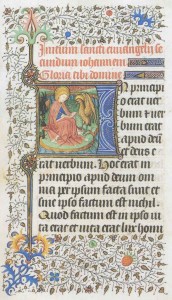 Inicium sancti euuangelii se
cundum iohannem
Gloria tibi domine
In principio
erat uer
bum & uer
bum erat
apud deū
et deus e
rat uerbum. Hoc erat in
principio apud deum om
nia per ipsum facta sunt et
sine ipso factum est nichil.
Quod factum est in ipso ui
ta erat et uita erat lux homi